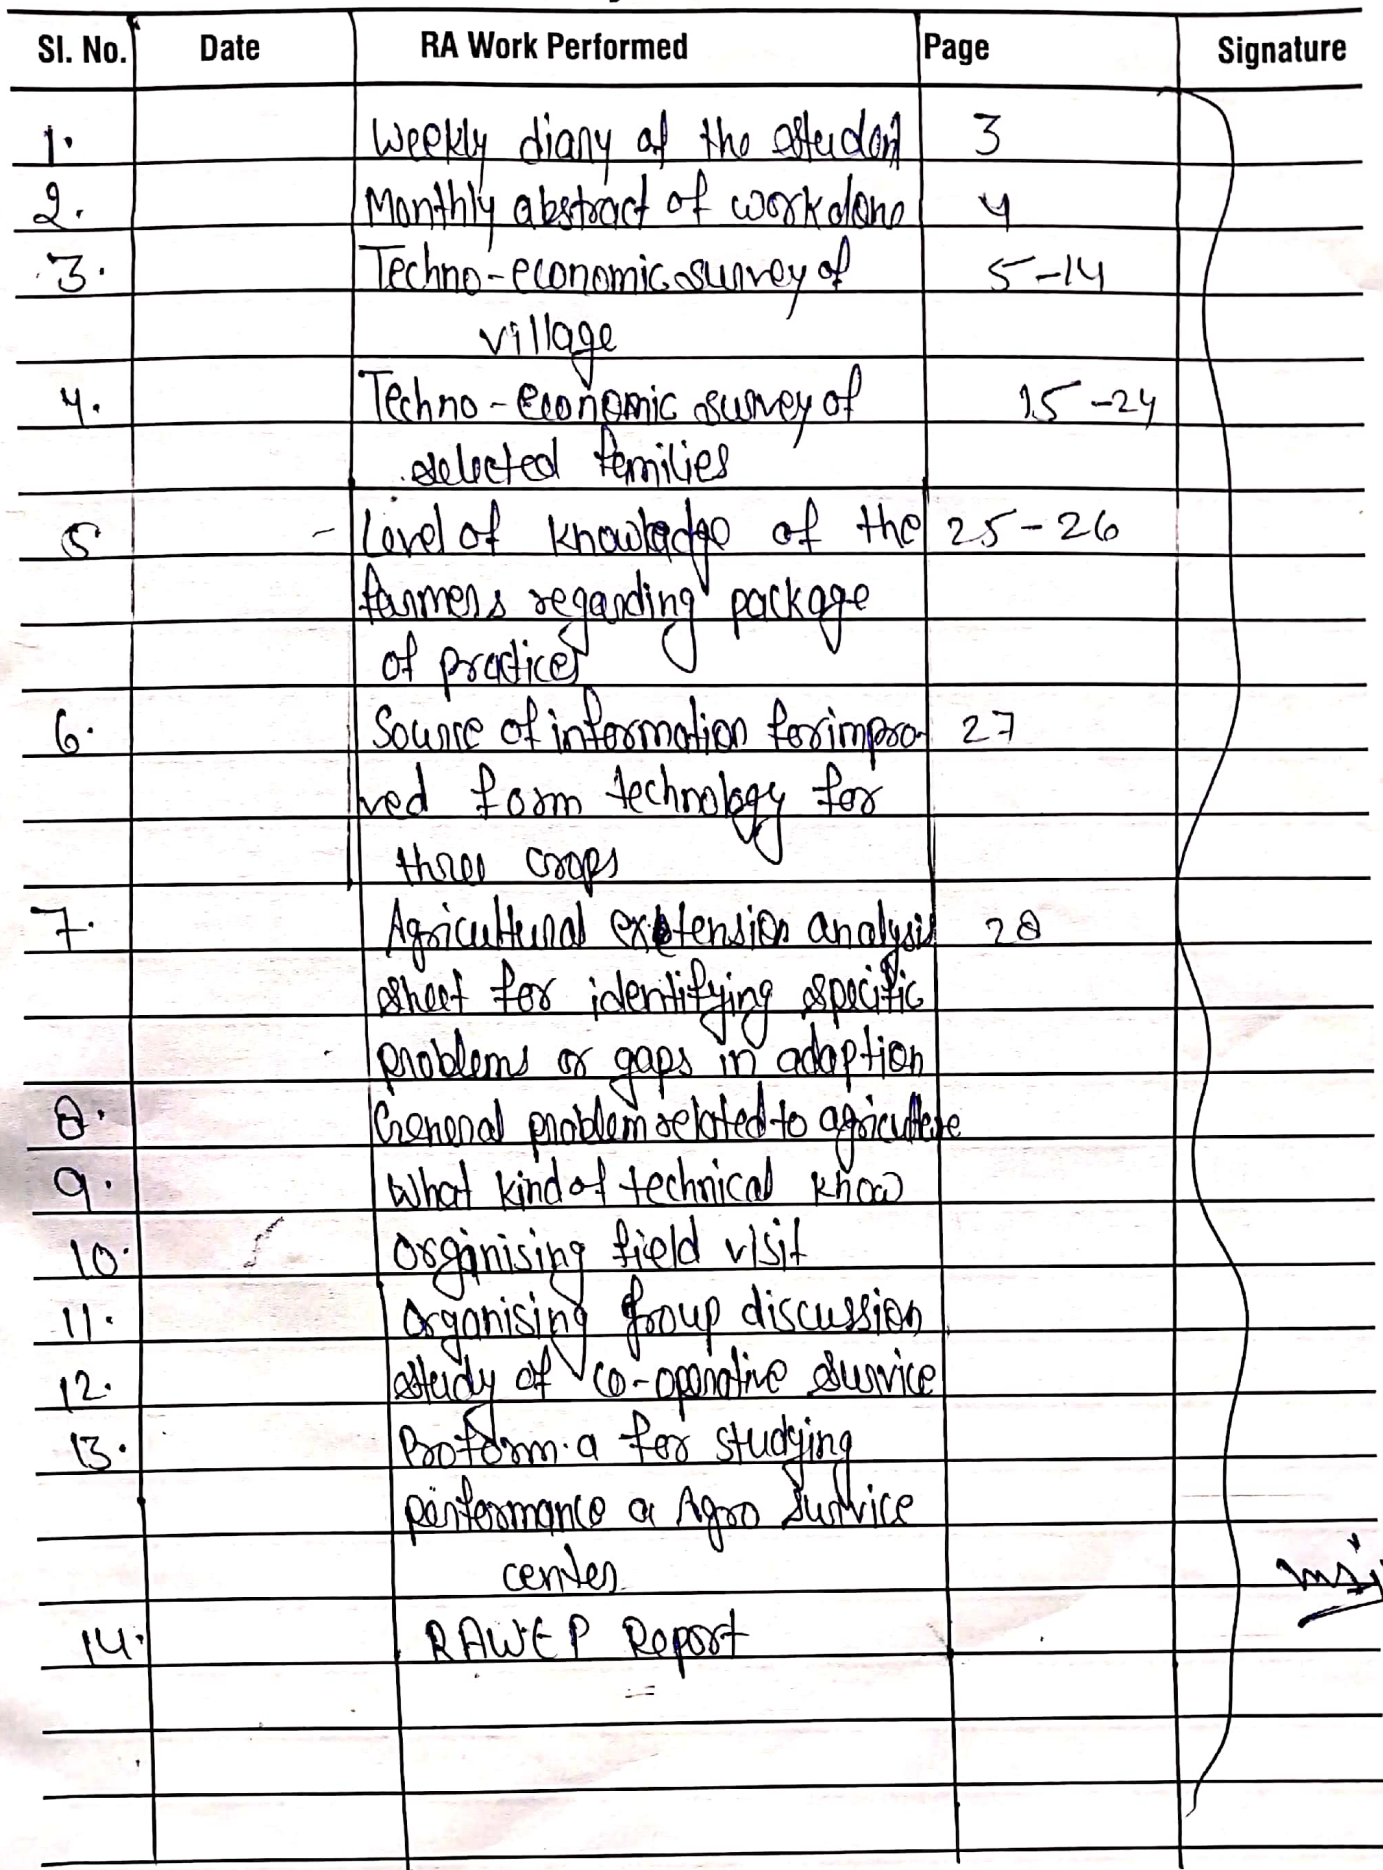 Sl. No. Date RA Work Performed Page Signature
1. Weekly diary of the student 3
2. Monthly abstract of work done 4
3. Techno-economic survey of 5-14
village
4. Techno-economic survey of 15-24
selected families
5 Level of knowledge of the 25-26
farmers regarding package
of practices
6. Source of information for impro- 27
ved farm technology for
three crops
7. Agricultural extension analysis 28
sheet for identifying specific
problems or gaps in adoption
8. General problem related to agriculture
9. What kind of technical know
10. Organising field visit
11. Organising group discussion
12. Study of co-operative survice
13. Proforma for studying
performance a Agro survice
center
14. RAWEP Report